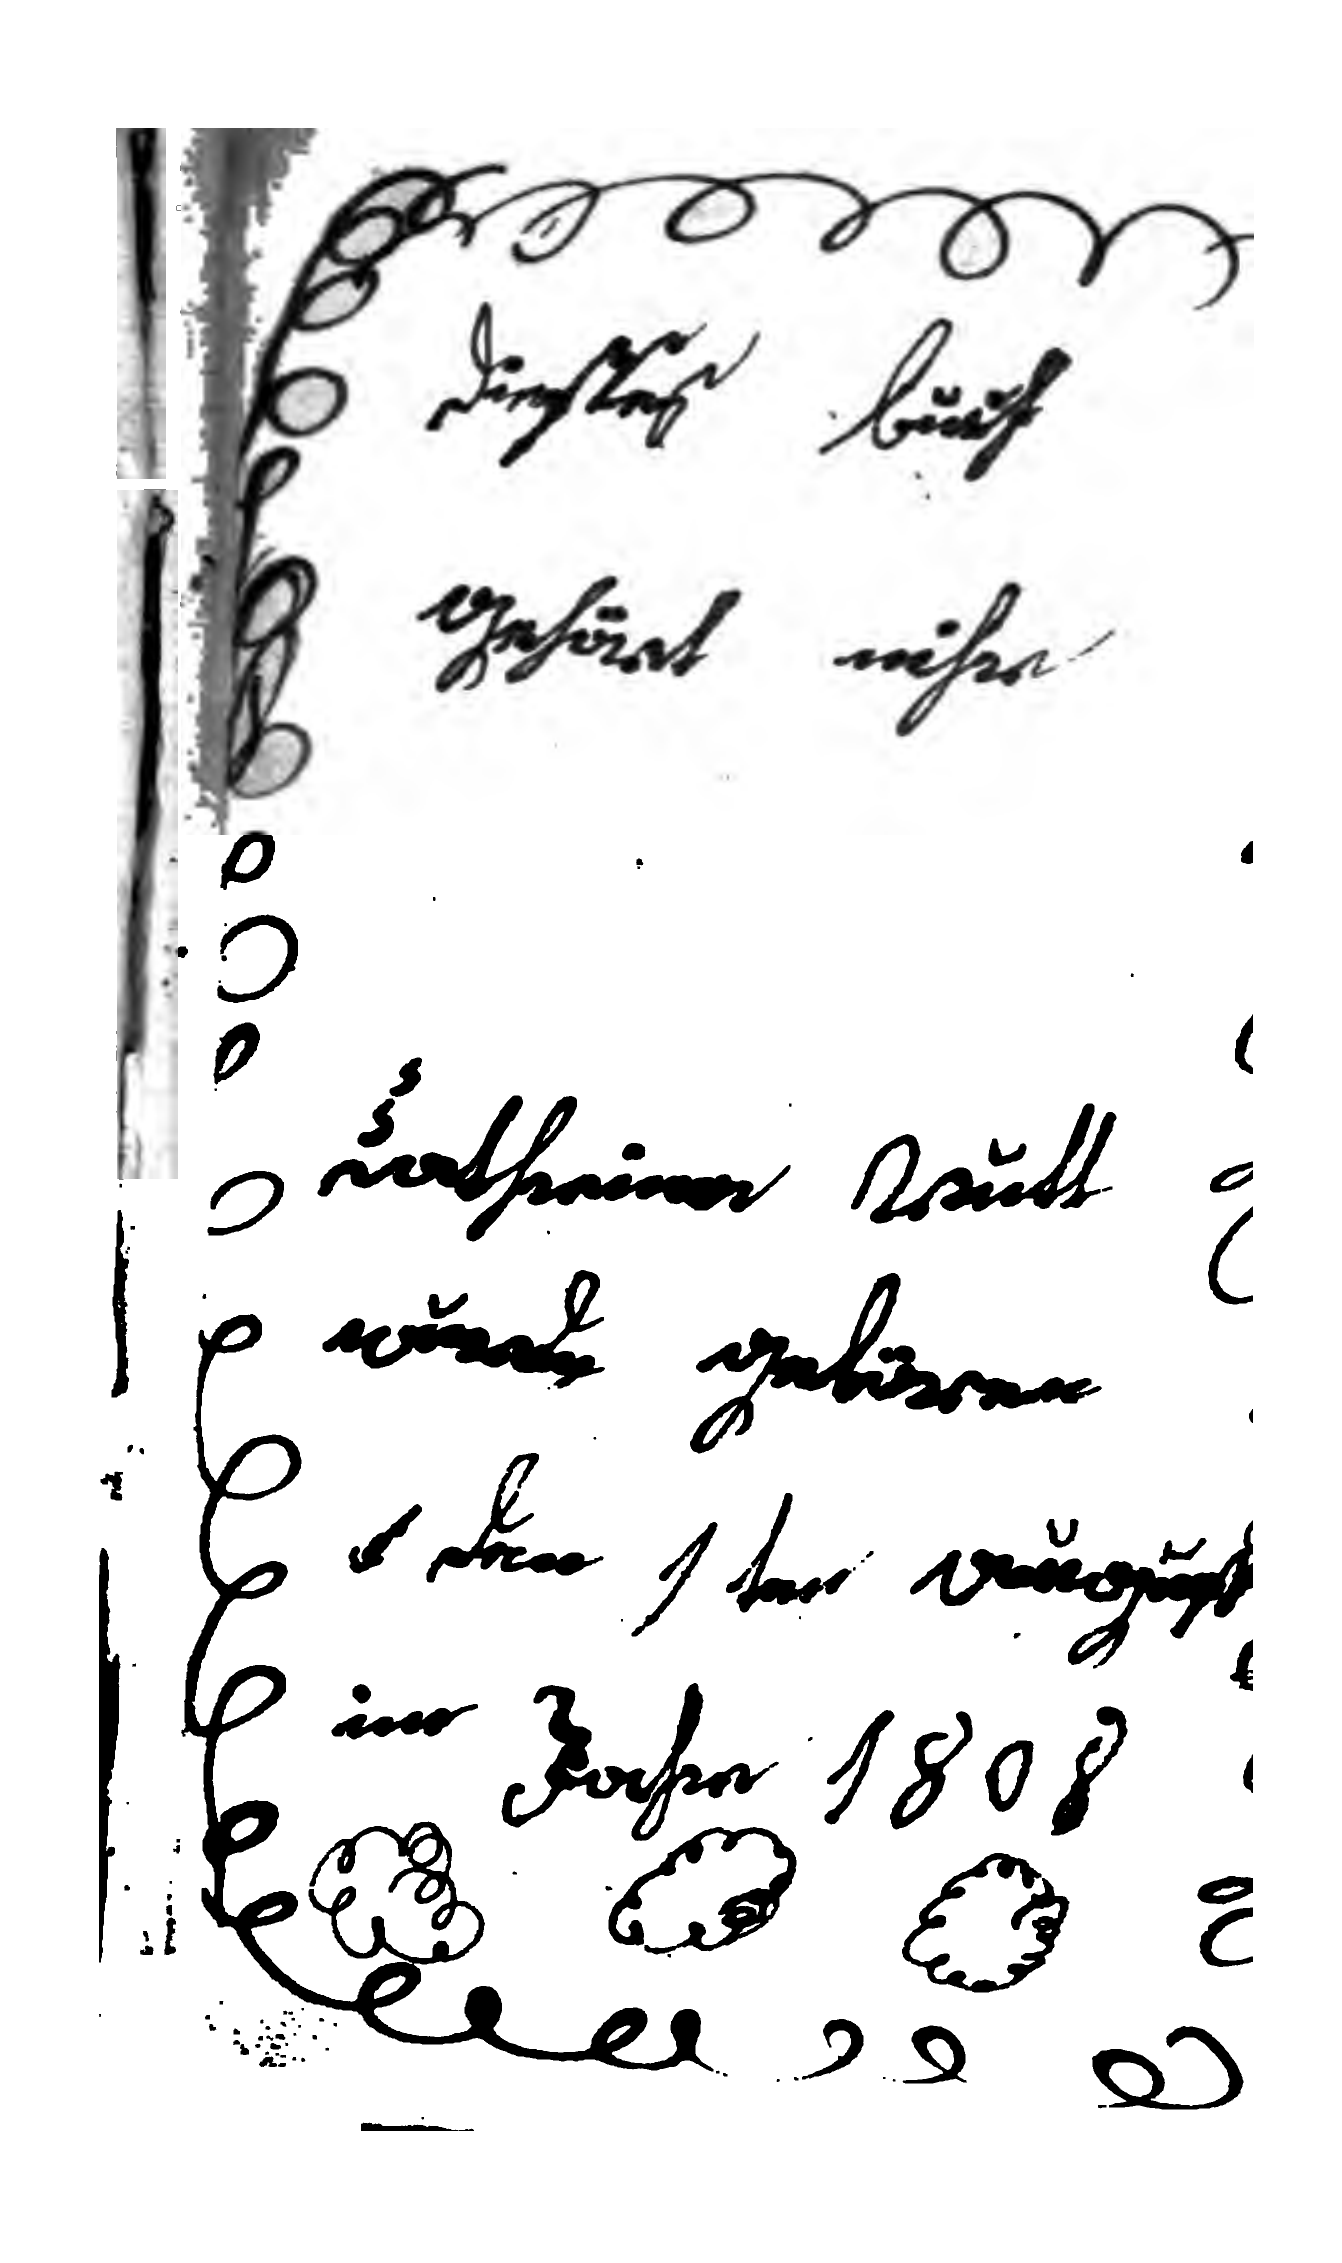 dieses buch
gehört mihr
Catharina Rutt
wurde gebören
den 1 ten august
im Jahr 1808